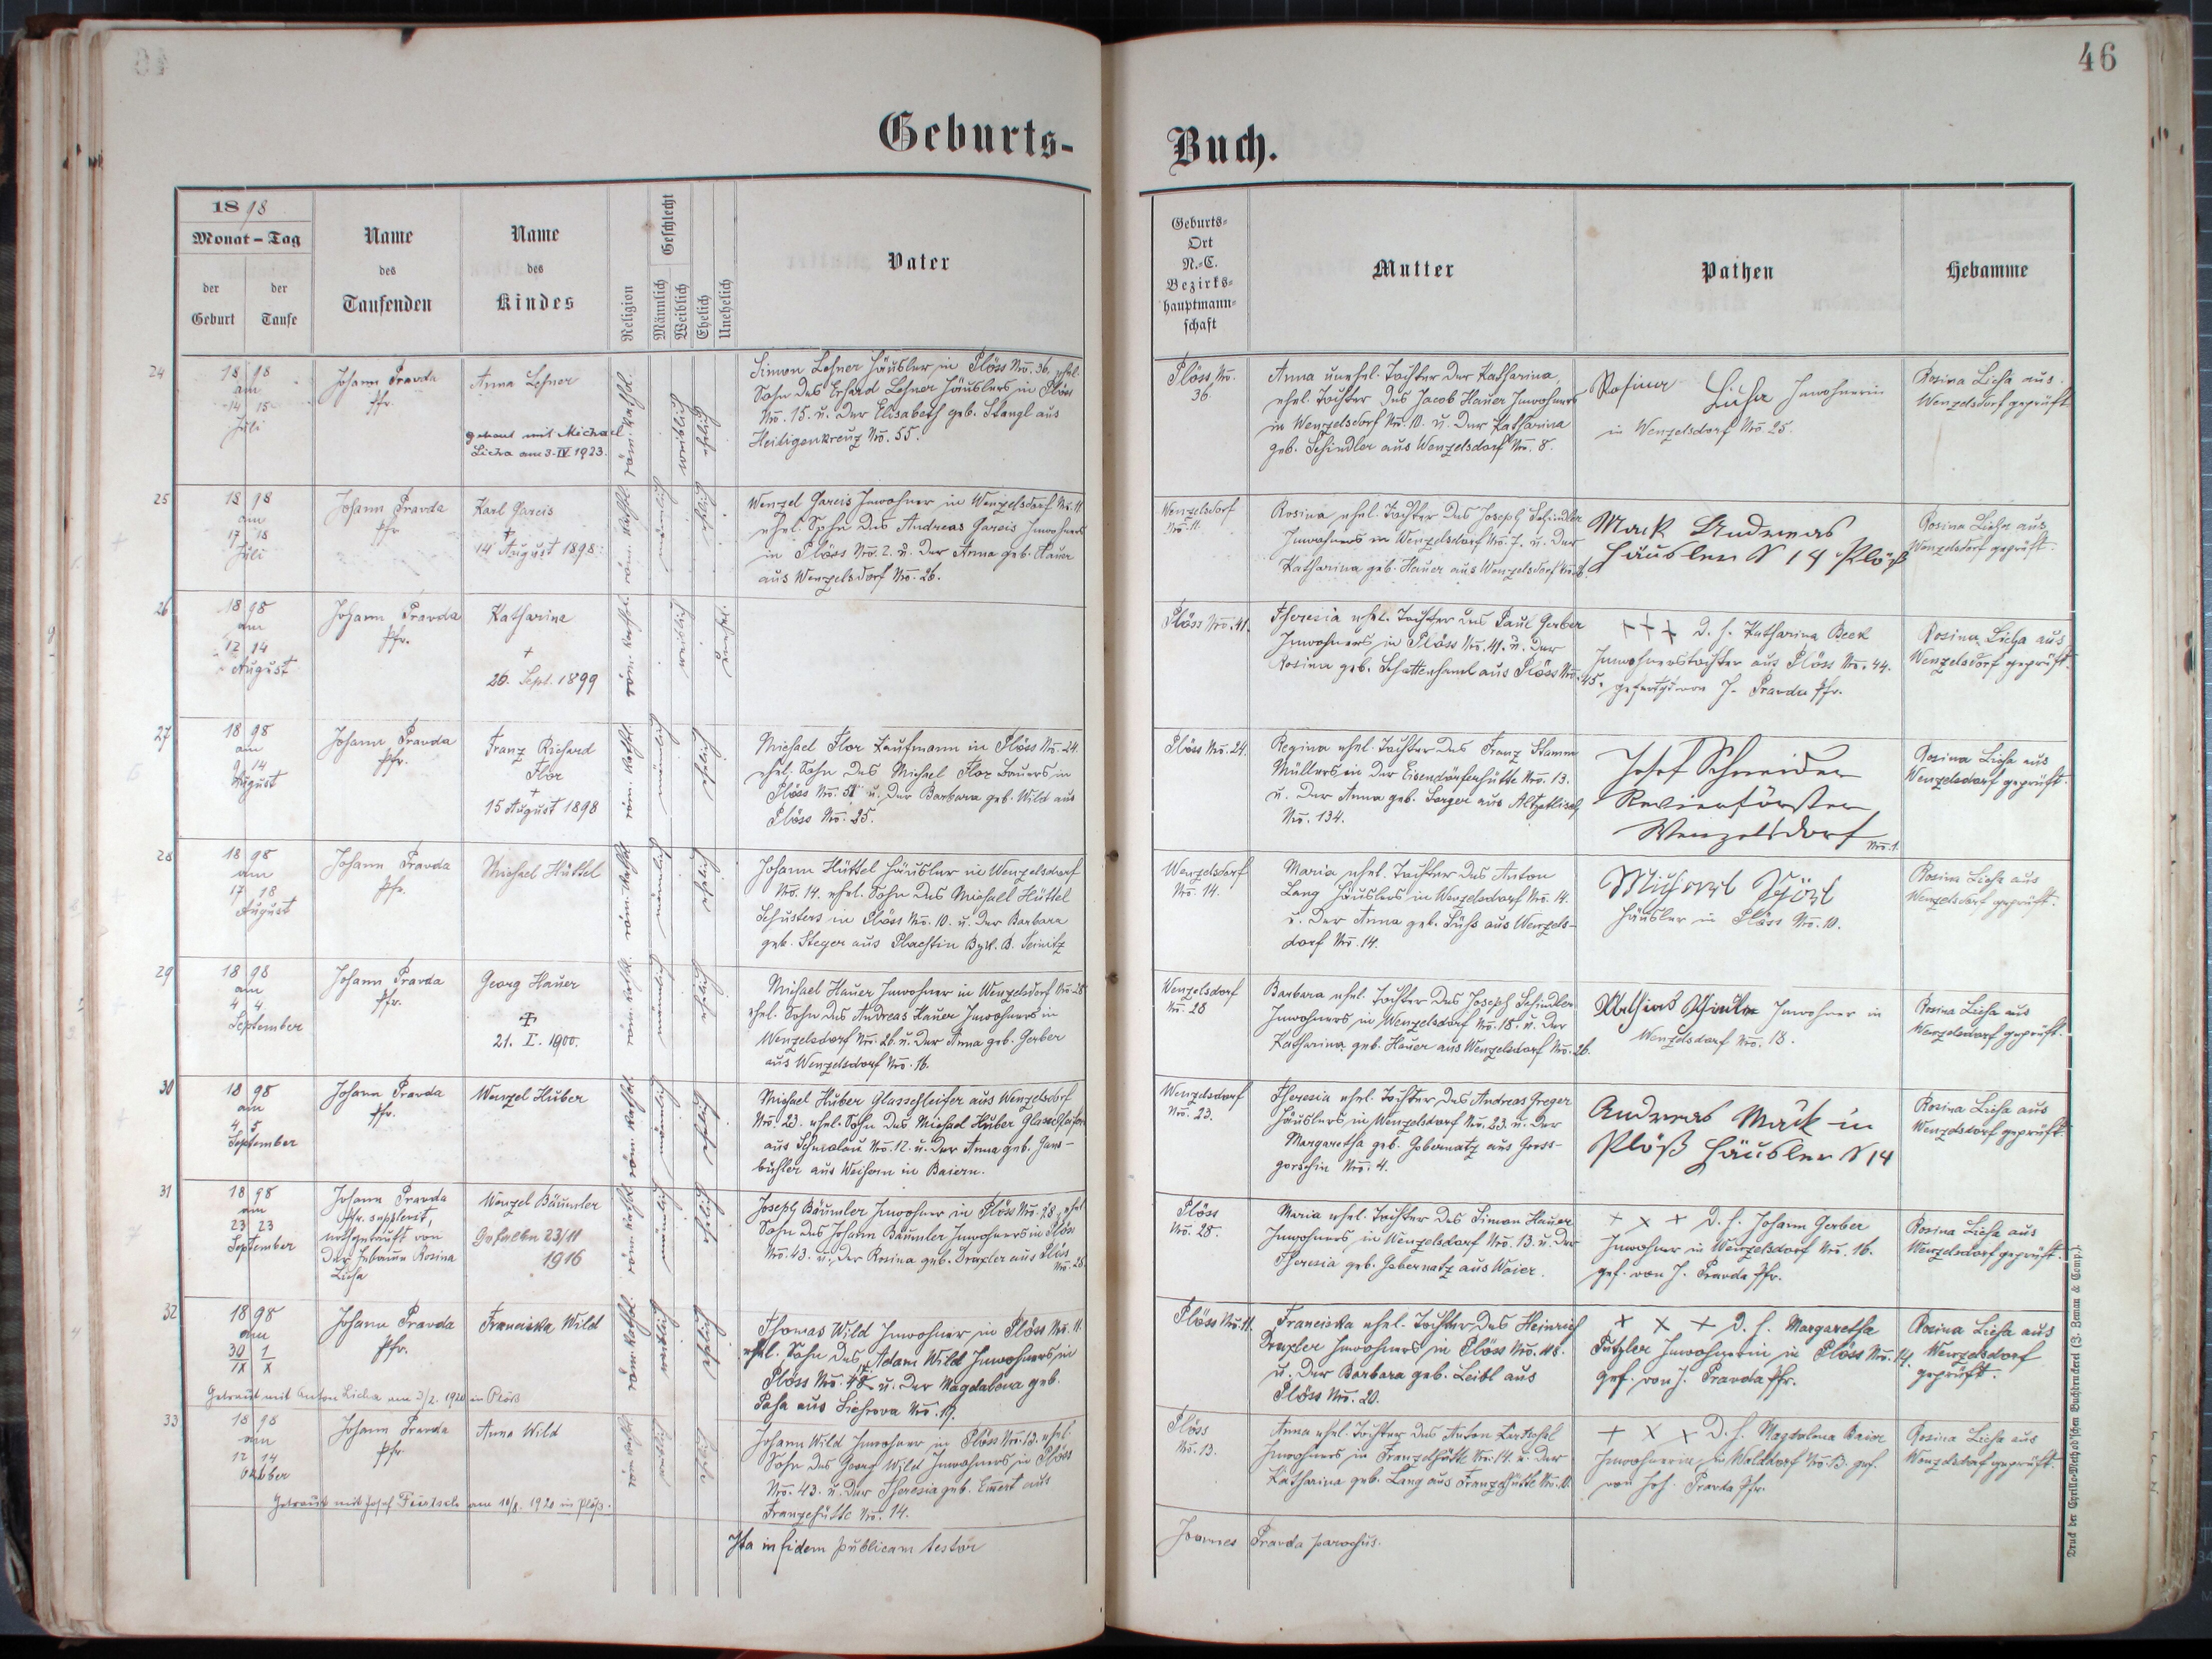 46
Geburts-
Buch.
1898
Monat-Tag
der Geburt
der Taufe
Name des Taufenden
Name des Kindes
Religion
Geschlecht
Männlich
Weiblich
Ehelich
Unehelich
Vater
Geburts-
Ort
N.-C.
Bezirks-
hauptmann-
schaft
Mutter
Pathen
Hebamme
24
1898
am
14 15
Juli
Johann Pravda
Pfr.
Anna Lehner
getraut mit Michael
Licha am 3.IV.1923.
röm. kathol.
weiblich
ehelich
Simon Lehner Häusler in Plöss Nro. 36. ehel.
Sohn des Erhard Lehner Häuslers in Plöss
Nro. 15. u. der Elisabeth geb. Stangl aus
Heiligenkreuz Nro. 55.
Plöss Nro.
36.
Anna unehel. Tochter der Katharina,
ehel. Tochter des Jacob Hauer Inwohners
in Wenzelsdorf Nro. 10. u. der Katharina
geb. Schindler aus Wenzelsdorf Nro. 8.
Rosina Licha Inwohnerin
in Wenzelsdorf Nro 25.
Rosina Licha aus
Wenzelsdorf geprüft
25
1898
am
17 18
Juli
Johann Pravda
Pfr.
Karl Gareis
†
14 August 1898.
röm. kathol.
männlich
ehelich
Wenzel Gareis Inwohner in Wenzelsdorf Nro. 11
ehel. Sohn des Andreas Gareis Inwohners
in Plöss Nro. 2. u. der Anna geb. Hauer
aus Wenzelsdorf Nro. 26.
Wenzelsdorf
Nro. 11.
Rosina ehel. Tochter des Joseph Schindler
Inwohners in Wenzelsdorf Nro. 7. u. der
Katharina geb. Hauer aus Wenzelsdorf
Mack Andreas
Häusler N 14 Plöß
Rosina Licha aus
Wenzelsdorf geprüft.
26
1898
am
12 14
August
Johann Pravda
Pfr.
Katharina
†
26. Sept. 1899
röm. kathol.
weiblich
unehel.
Plöss Nro. 41.
Theresia ehel. Tochter des Paul Gerber
Inwohners in Plöss Nro. 41. u. der
Rosina geb. Schattenhand aus Plöss Nro. 45.
+++ d. h. Katharina Beck
Inwohnerstochter aus Plöss Nro. 44.
gefertigt von J. Pravda Pfr.
Rosina Licha aus
Wenzelsdorf geprüft.
27
1898
am
9 14
August
Johann Pravda
Pfr.
Franz Richard
Flor
†
15 August 1898
röm. kathol.
männlich
ehelich
Michael Flor Kaufmann in Plöss Nro. 24.
ehel. Sohn des Michael Flor Bauers in
Plöss Nro. 51 u. der Barbara geb. Wild aus
Plöss Nro. 25.
Plöss Nro. 24.
Regina ehel. Tochter des Franz Stamm
Müllers in der Eisendorferhütte Nro. 13.
u. der Anna geb. Sorger aus Altzetlisch
Nro. 134.
Josef Schneider
Revierförster
Wenzelsdorf Nro. 1.
Rosina Licha aus
Wenzelsdorf geprüft.
28
1898
am
17 18
August
Johann Pravda
Pfr.
Michael Hüttel
röm. kathol.
männlich
ehelich
Johann Hüttel Häusler in Wenzelsdorf
Nro. 14. ehel. Sohn des Michael Hüttel
Schusters in Plöss Nro. 10. u. der Barbara
geb. Steger aus Plachtin Bzk. B. Teinitz
Wenzelsdorf
Nro. 14.
Maria ehel. Tochter des Anton
Lang Häuslers in Wenzelsdorf Nro. 14.
u. der Anna geb. Süß aus Wenzels-
dorf Nro. 14.
Michael
Häusler in Plöss Nro. 10.
Rosina Licha aus
Wenzelsdorf geprüft.
29
1898
am
4 4
September
Johann Pravda
Pfr.
Georg Hauer
†
21. I. 1900.
röm. kathol.
männlich
ehelich
Michael Hauer Inwohner in Wenzelsdorf Nro. 28
ehel. Sohn des Andreas Hauer Inwohners in
Wenzelsdorf Nro. 26. u. der Anna geb. Gerber
aus Wenzelsdorf Nro. 16.
Wenzelsdorf
Nro. 28
Barbara ehel. Tochter des Joseph Schindler
Inwohners in Wenzelsdorf Nro. 18. u. der
Katharina geb. Hauer aus Wenzelsdorf Nro. 26.
Inwohner in
Wenzelsdorf Nro. 18.
Rosina Licha aus
Wenzelsdorf geprüft.
30
1898
am
4 5
September
Johann Pravda
Pfr.
Wenzel Huber
röm. kathol.
männlich
ehelich
Michael Huber Glasschleifer aus Wenzelsdorf
Nro. 23. ehel. Sohn des Michael Huber Glasschleifers
aus Schmolau Nro. 12. u. der Anna geb.
bühler aus Weihern in Baiern.
Wenzelsdorf
Nro. 23.
Theresia ehel. Tochter des Andreas Greger
Häuslers in Wenzelsdorf Nro. 23. u. der
Margaretha geb. Gobernatz aus Gross-
gorschin Nro. 4.
Andreas Mack in
Plöß Häusler N 14
Rosina Licha aus
Wenzelsdorf geprüft.
31
1898
am
23 23
September
Johann Pravda
Pfr. supplevit,
nothgetauft von
der Hebamme Rosina
Licha
Wenzel Bäumler
Gefallen 23/11
1916
röm. kathol.
männlich
ehelich
Joseph Bäumler Inwohner in Plöss Nro. 28. ehel
Sohn des Johann Bäumler Inwohners in Plöss
Nro. 43. u. der Rosina geb. Drexler aus Plöss
Nro. 28.
Plöss
Nro. 28.
Maria ehel. Tochter des Simon Hauer
Inwohners in Wenzelsdorf Nro. 13. u. der
Theresia geb. Gobernatz aus Waier.
+ + + d. h. Johann Gerber
Inwohner in Wenzelsdorf Nro. 16.
gef. von J. Pravda Pfr.
Rosina Licha aus
Wenzelsdorf geprüft.
32
1898
am
30 1
IX X
Johann Pravda
Pfr.
Franciska Wild
röm. kathol.
weiblich
ehelich
Thomas Wild Inwohner in Plöss Nro. 11.
ehel. Sohn des Adam Wild Inwohners in
Plöss Nro. u. der Magdalena geb.
Pasa aus Nro. 19.
Getraut mit Anton Licha am 3/2. 1920 in Plöß
Plöss Nro. 11.
Franciska ehel. Tochter des Heinrich
Drexler Inwohners in Plöss Nro. 48.
u. der Barbara geb. Leibl aus
Plöss Nro. 20.
+ + + d. h. Margaretha
Futzler Inwohnerin in Plöss Nro. 14.
gef. von J. Pravda Pfr.
Rosina Licha aus
Wenzelsdorf
geprüft.
33
1898
am
12 14
October
Johann Pravda
Pfr.
Anna Wild
röm. kathol.
weiblich
ehelich
Johann Wild Inwohner in Plöss Nro. 13. ehel.
Sohn des Georg Wild Inwohners in Plöss
Nro. 43. u. der Theresia geb. Emert aus
Franzelhütte Nro. 14.
Getraut mit Josef am 10/8. 1920 in Plöß.
Plöss
Nro. 13.
Anna ehel. Tochter des Anton
Inwohners in Franzelhütte Nro. 14. u. der
Katharina geb. Lang aus Franzelhütte Nro.
+ + + d. h. Magdalena Baier
Inwohnerin in Walddorf Nro. 13. gef.
von Joh. Pravda Pfr.
Rosina Licha aus
Wenzelsdorf geprüft.
Ita in fidem publicam testor
Joannes Pravda parochus.
Druck der Cyrillo-Method'schen Buchdruckerei (J. Zeman & Comp.)